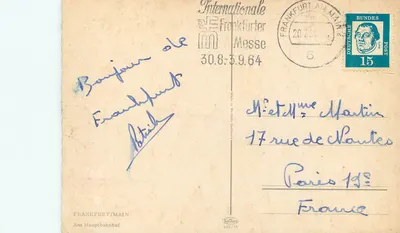 Internationale
Frankfurter
Messe
30.8.-3.9.64
FRANKFURT AM MAIN 2
6
DEUTSCHE BUNDESPOST
15
Bonjour de
Frankfurt
Patrick
Mr et Mme Martin
17 rue de Nantes
Paris 19e
France
FRANKFURT/MAIN
Am Hauptbahnhof